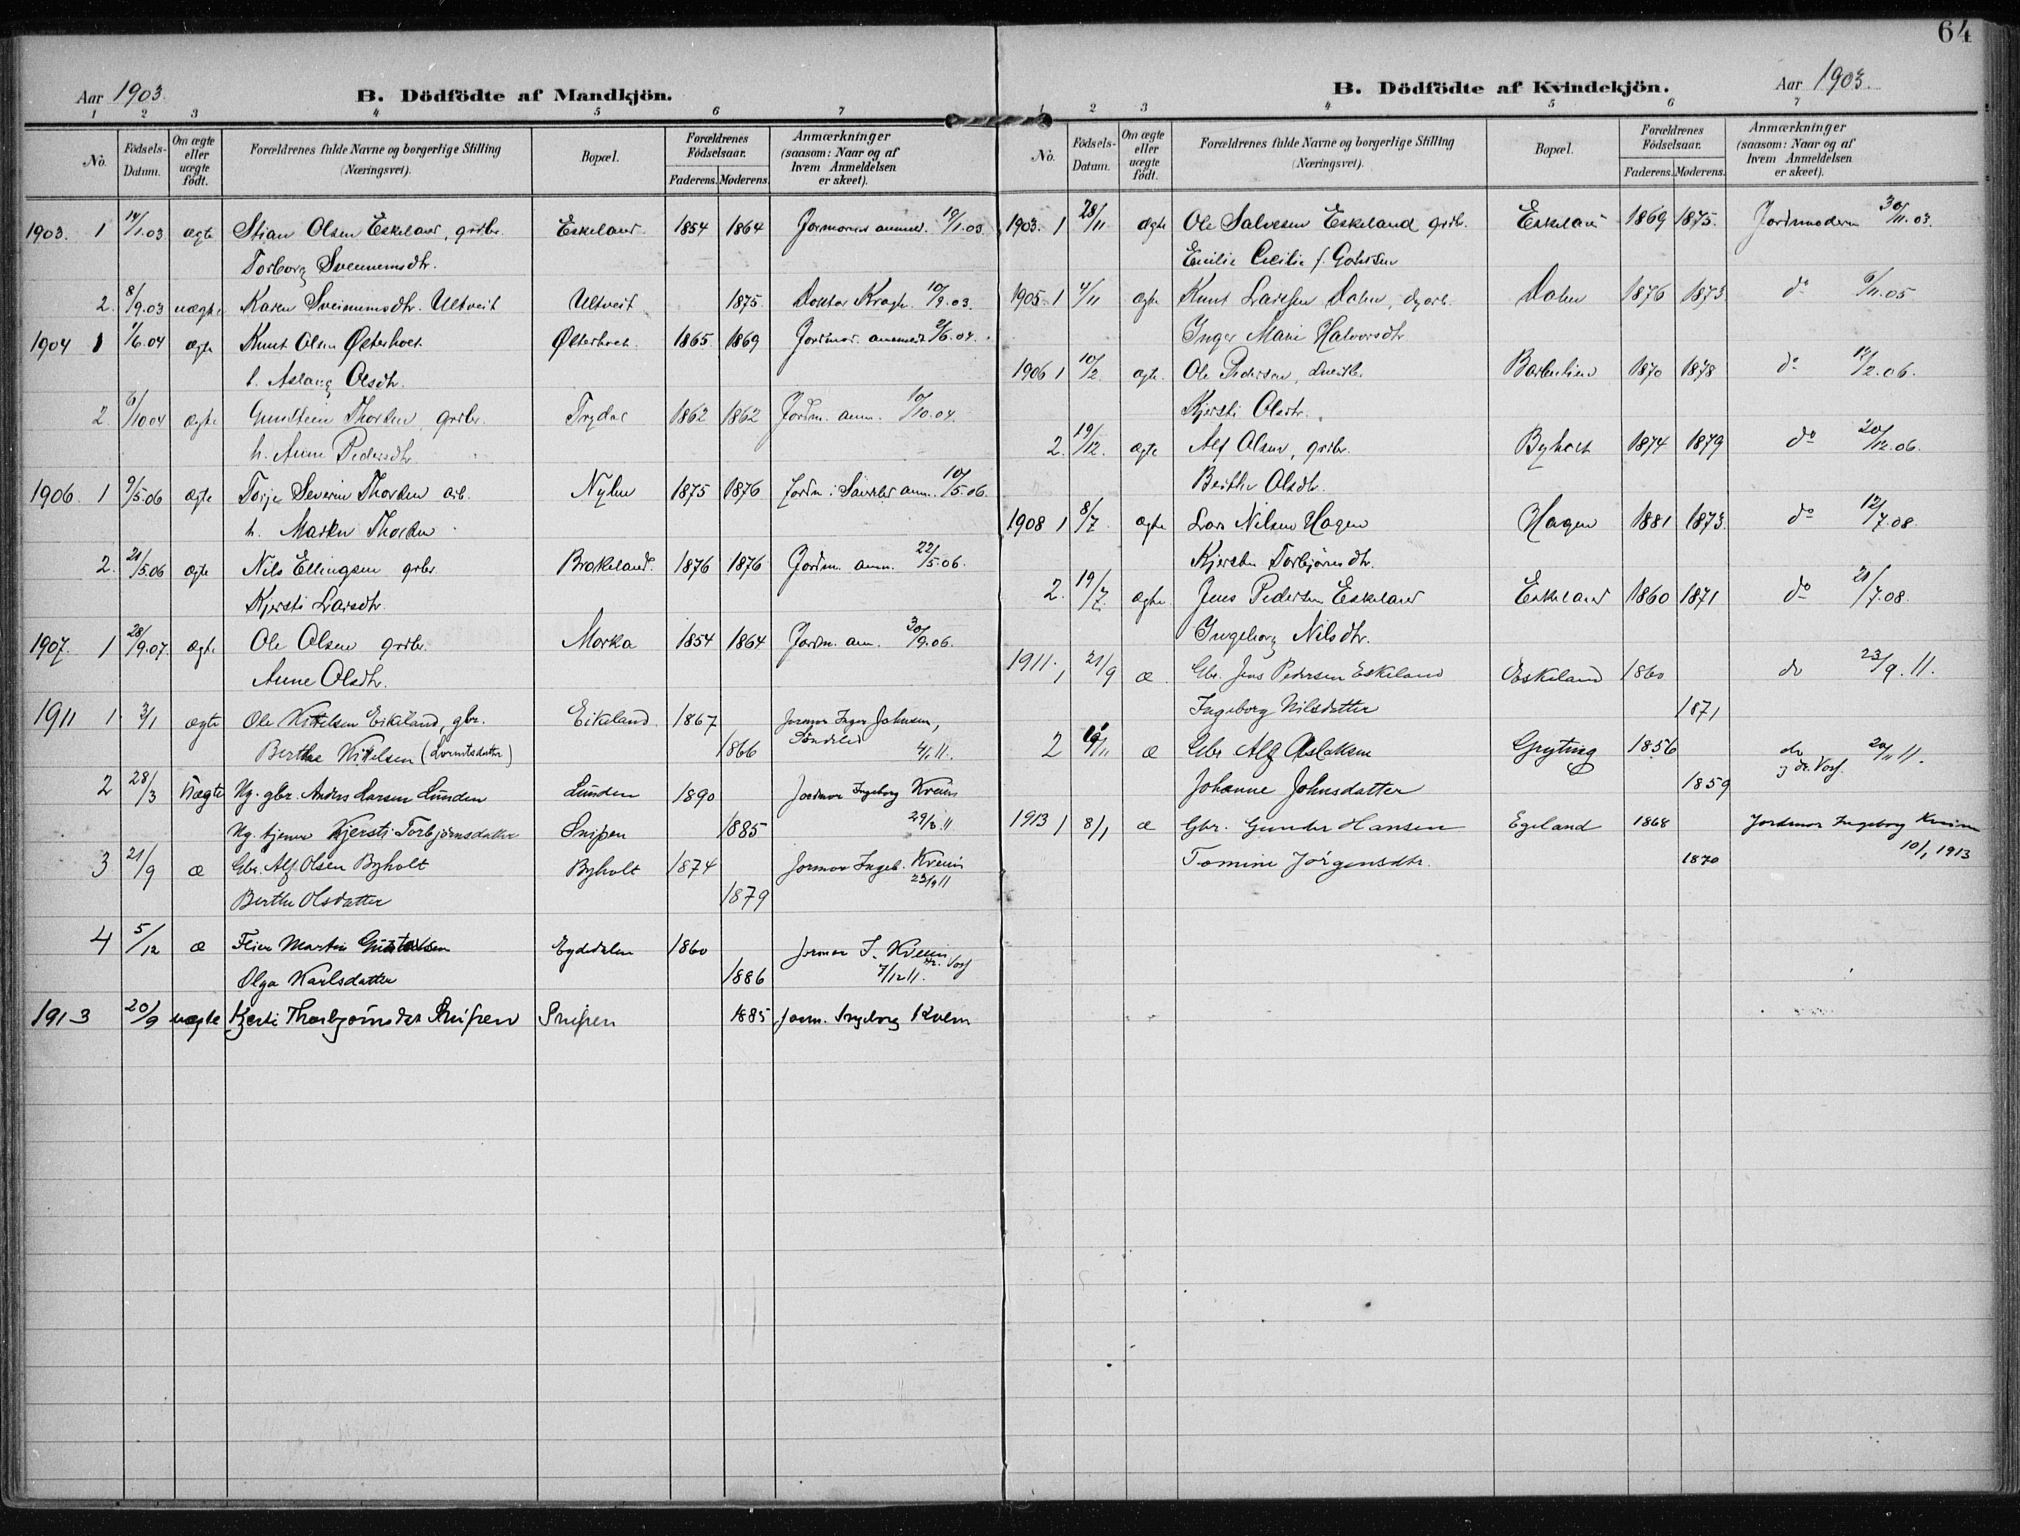 64
Aar 1903.
B. Dödfödte af Mandkjön.
1 2 3 4 5 6 7
No. Födsels-Datum. Om ægte eller uægte födt. Forældrenes fulde Navne og borgerlige Stilling (Næringsvei). Bopæl. Forældrenes Födselsaar. Faderens. Moderens. Anmærkninger (saasom: Naar og af hvem Anmeldelsen er skeet).
1903. 1 14/1.03 ægte Stian Olsen Eskeland, grdbr. Eskeland 1854 1864 19/1.03.
Torborg
2. 8/9.03 uægte Karen Ultveit Ultveit 1875 Doktor Kragh. 10/9.03.
1904 1 1/6.04 ægte Knut Olsen Østerholt Østerholt 1865 1869 2/6.04.
h. Aslaug Olsdtr.
2. 6/10.04 ægte Thorsen, grdbr. 1862 1862 Jordm. anm. 10/10.04.
h. Anne Pedersdtr
1906. 1 9/5.06 ægte Torje Severin Thorsen arb. 1875 1876 Jordm. i Søndeled anm. 10/5.06.
h. Thorsen
2. 21/5.06 ægte Nils Ellingsen grbr. Brokeland. 1876 1876 Jordm. anm. 22/5.06.
Kjersti Larsdtr.
1907. 1 28/9.07. ægte Ole Olsen grdbr. Morka 1854 1864 Jordm. am. 30/9.06.
Anne Olsdtr.
1911 1. 3/1 ægte Ole Eikeland, gbr. Eikeland 1867 Jormor Inger Johnsen,
Berthe 1866 Søndeled 4/1 11.
2 28/3 Uægte Ug. gbr. Anders Larsen Lunden Lunden 1890 Jordmor Ingeborg Kveim
Ug. tjener Kjersti Torbjørnsdatter Snipen 1885 29/3 11
3 21/9 æ Gbr. Alf Olsen Byholt Byholt 1874 Jormor Ingeb. Kveim
Berthe Olsdatter 1879 23/9 11
4 5/12 æ Martin Gustavsen 1860 Jormor I. Kveim
Olga Karlsdatter 1886 7/12 11.
1913 20/9 uægte Kjersti Snipen Snipen 1885 Jorm. Ingeborg Kveim
B. Dödfödte af Kvindekjön.
Aar 1903.
1 2 3 4 5 6 7
No. Födsels-Datum. Om ægte eller uægte födt. Forældrenes fulde Navne og borgerlige Stilling (Næringsvei). Bopæl. Forældrenes Födselsaar. Faderens. Moderens. Anmærkninger (saasom: Naar og af hvem Anmeldelsen er skeet).
1903. 1 28/11 ægte Ole Salvesen Eskeland grdbr. Eskeland 1869 1875. Jordmoderen 30/11.03.
Emilie Cecilie f.
1905. 1 4/11 ægte Knut Larsen Dalen Dalen 1876 1873 do 6/11.05
Inger Marie Halvorsdtr
1906 1 10/2. ægte. Ole Pedersen, 1870 1878 do 12/2.06.
Kjersti Olsdtr.
2. 19/12. ægte Alf Olsen, grdbr. Byholt 1874 1879 do 20/12.06.
Berthe Olsdtr.
1908 1 8/7 ægte Lars Nilsen Hagen Hagen 1881 1873. do 12/7.08.
Kjersten Torbjørnsdtr.
2. 19/7. ægte Jens Pedersen Eskeland Eskeland 1860 1871 do 21/7.08.
Ingeborg Nilsdtr.
1911. 1 21/9 æ Gbr. Jens Pedersen Eskeland Eskeland 1860 do 23/9. 11.
Ingeborg Nilsdatter 1871
2 /11 æ Gbr Alf Aslaksen Gryting 1856 do 20/11 11.
Johanne Johnsdatter 1859
1913 1 8/1 æ Gbr. Gunder Hansen Egeland 1868 Jordmor Ingeborg Kveim
Tomine Jørgensdtr. 1870 10/1 1913